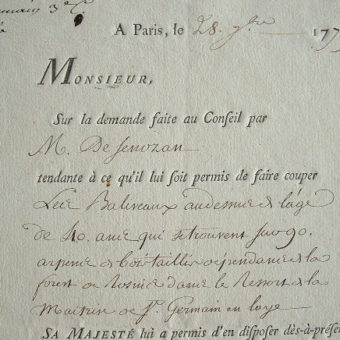 A Paris, le 28. 9bre 177
MONSIEUR,
Sur la demande faite au Conseil par
M. De Senozan
tendante à ce qu'il lui soit permis de faire couper
Les Baliveaux audessus de lage
de 40. ans qui se trouvent sur 90.
arpens de bois taillis dependans de la
forest de Rosnie dans le Ressort de la
Maitrise de St. Germain en laye
SA MAJESTÉ lui a permis d'en disposer dès-à-présen